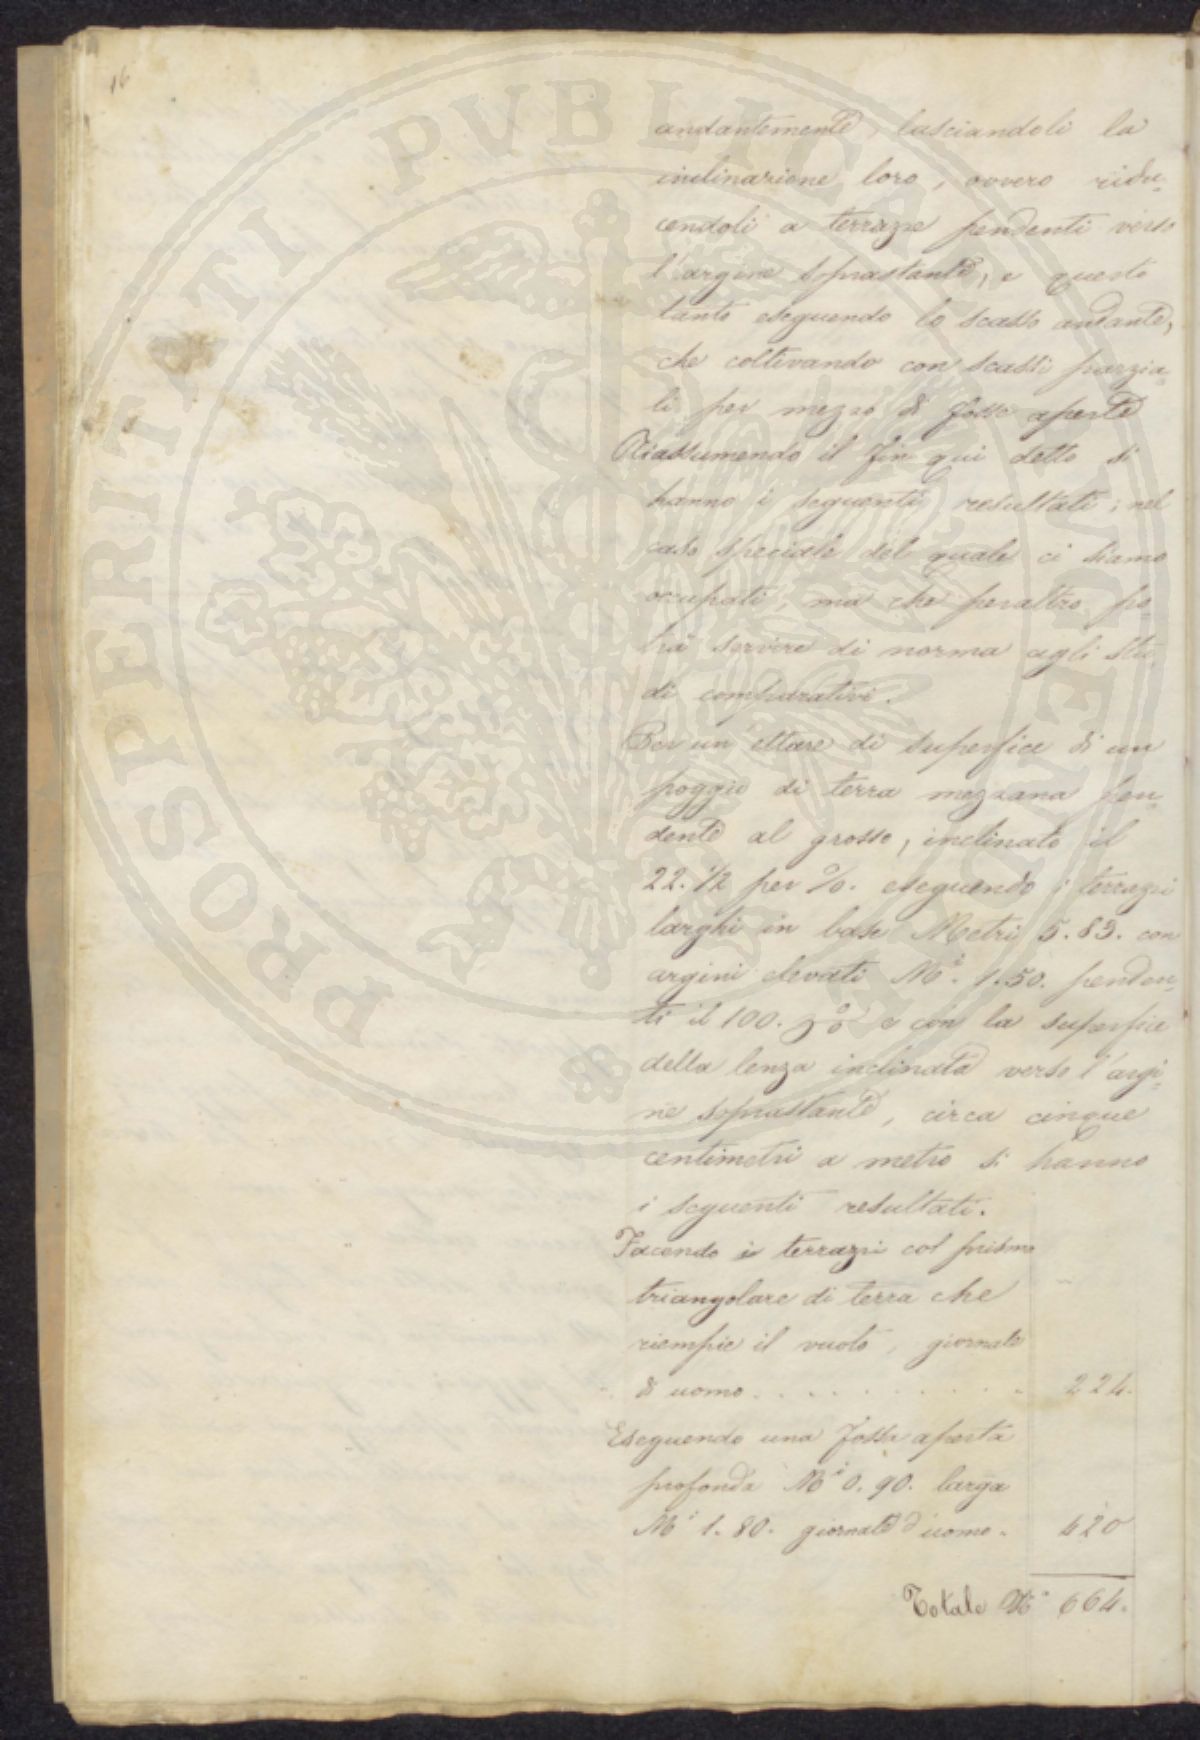 16
andantemente, lasciandoli la
inclinazione loro, ovvero ridu-
cendoli a terrazze pendenti verso
l'argine soprastante, e questo
tanto eseguendo lo scasso andante,
che coltivando con scassi parzia-
li per mezzo di fosse aperte
Riassumendo il fin qui detto si
hanno i seguenti resultati; nel
caso speciale del quale ci siamo
occupati, ma che peraltro po
trà servire di norma agli Stu
di comparativi.
Per un'ettare di superfice di un
poggio di terra mezzana pen-
dente al grosso, inclinato il
22.1/2 per %. eseguendo i terrazzi
larghi in base Metri 5.83. con
argini elevati Mi. 1.50. penden-
ti il 100. % e con la superfice
della lenza inclinata verso l'argi-
ne soprastante, circa cinque
centimetri a metro si hanno
i seguenti resultati.
Facendo i terrazzi col prisma
triangolare di terra che
riempie il vuoto, giornate
di uomo . . . . . . . . . . 224.
Eseguendo una fossa aperta
profonda Mi 0.90. larga
Mi 1.80. giornate d'uomo. 420
Totale No 664.
PROSPERITATI PVBLICAE AVGENDAE